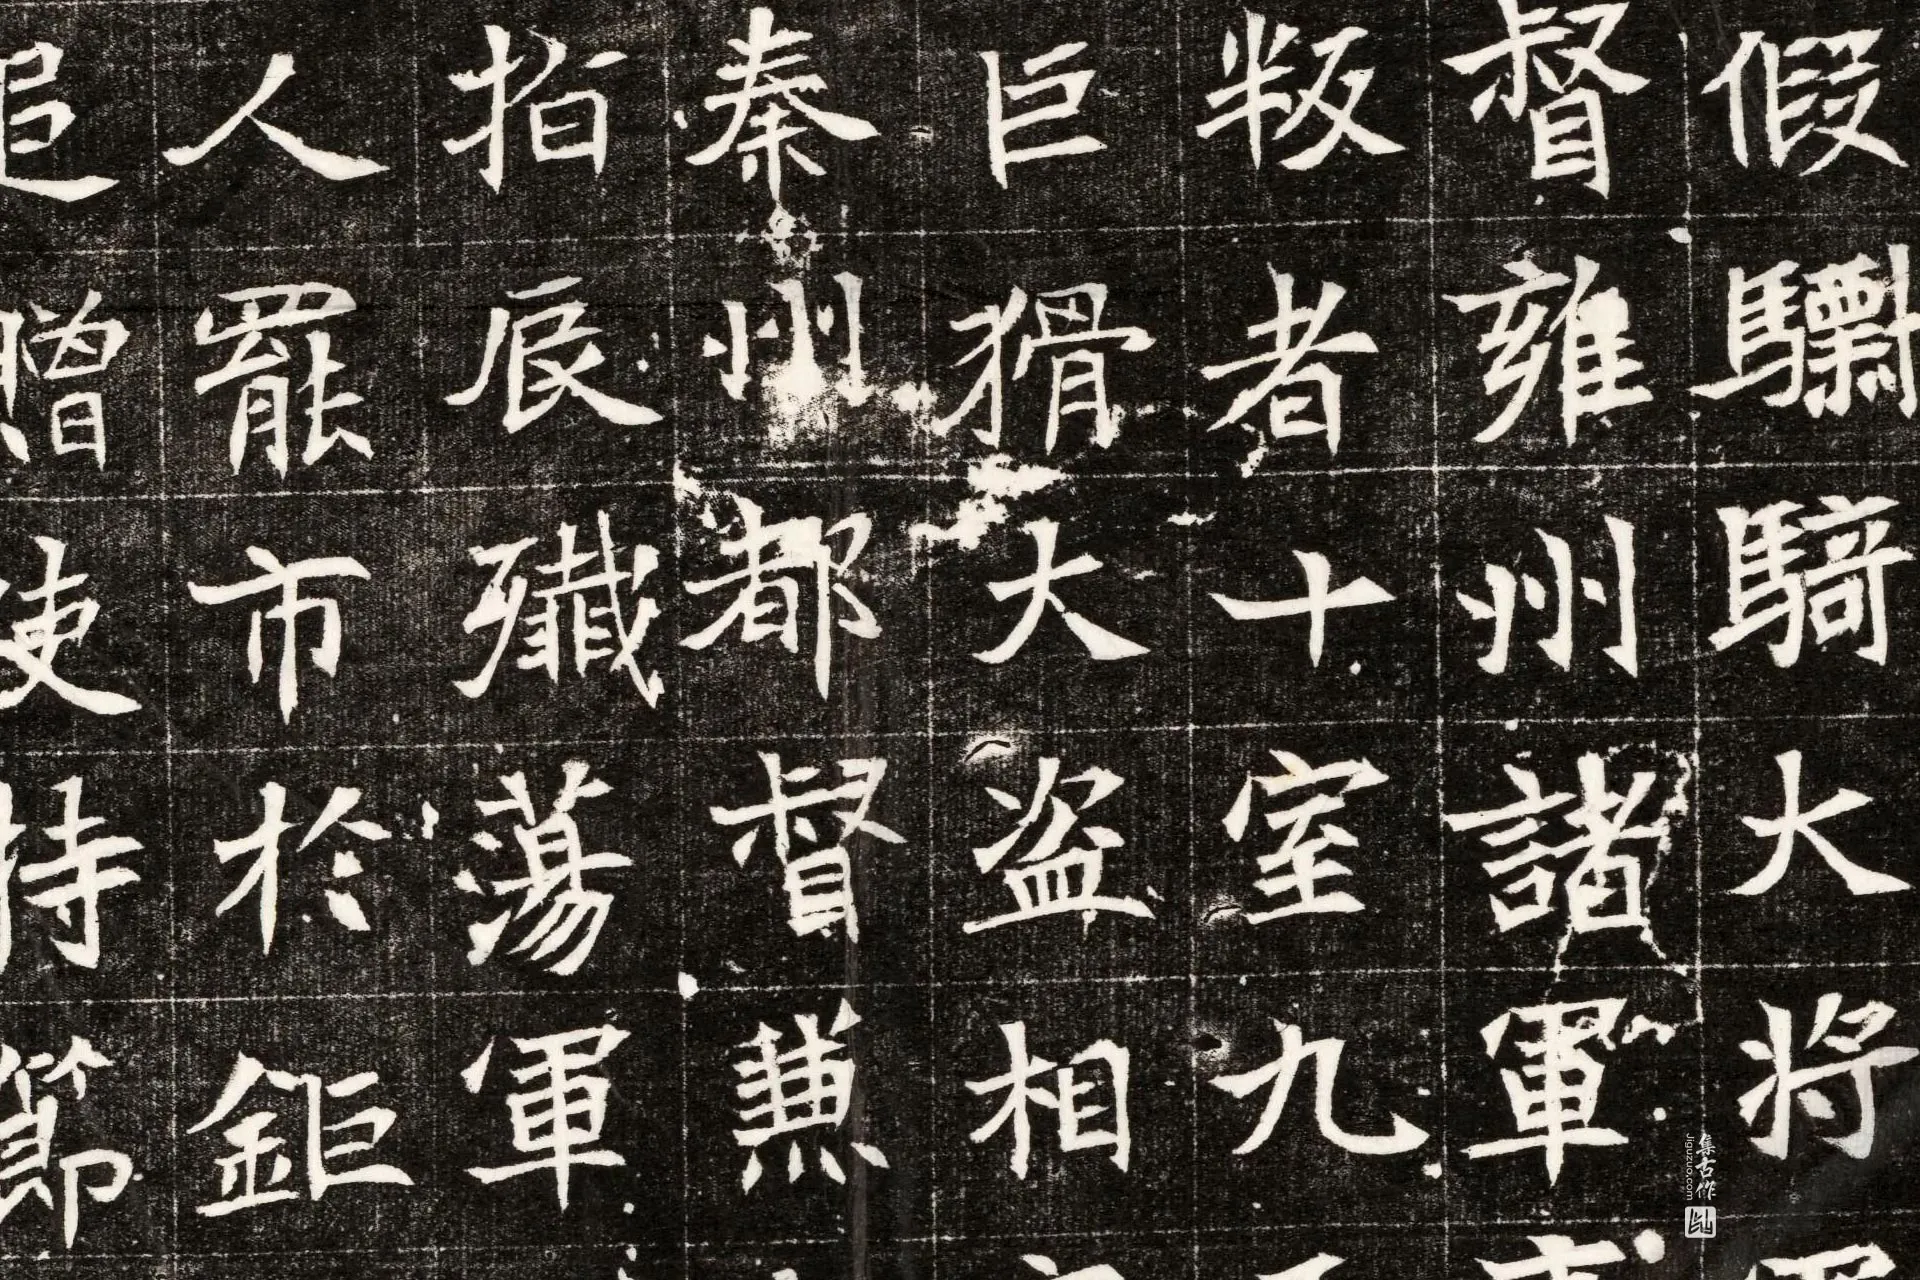 假驃騎大将
督雍州諸軍
叛者十室九
巨猾大盗相
秦州都督𠔥
指辰殱蕩軍
人罷市於鉅
追贈使持節
集古作
Jiguzuo.com